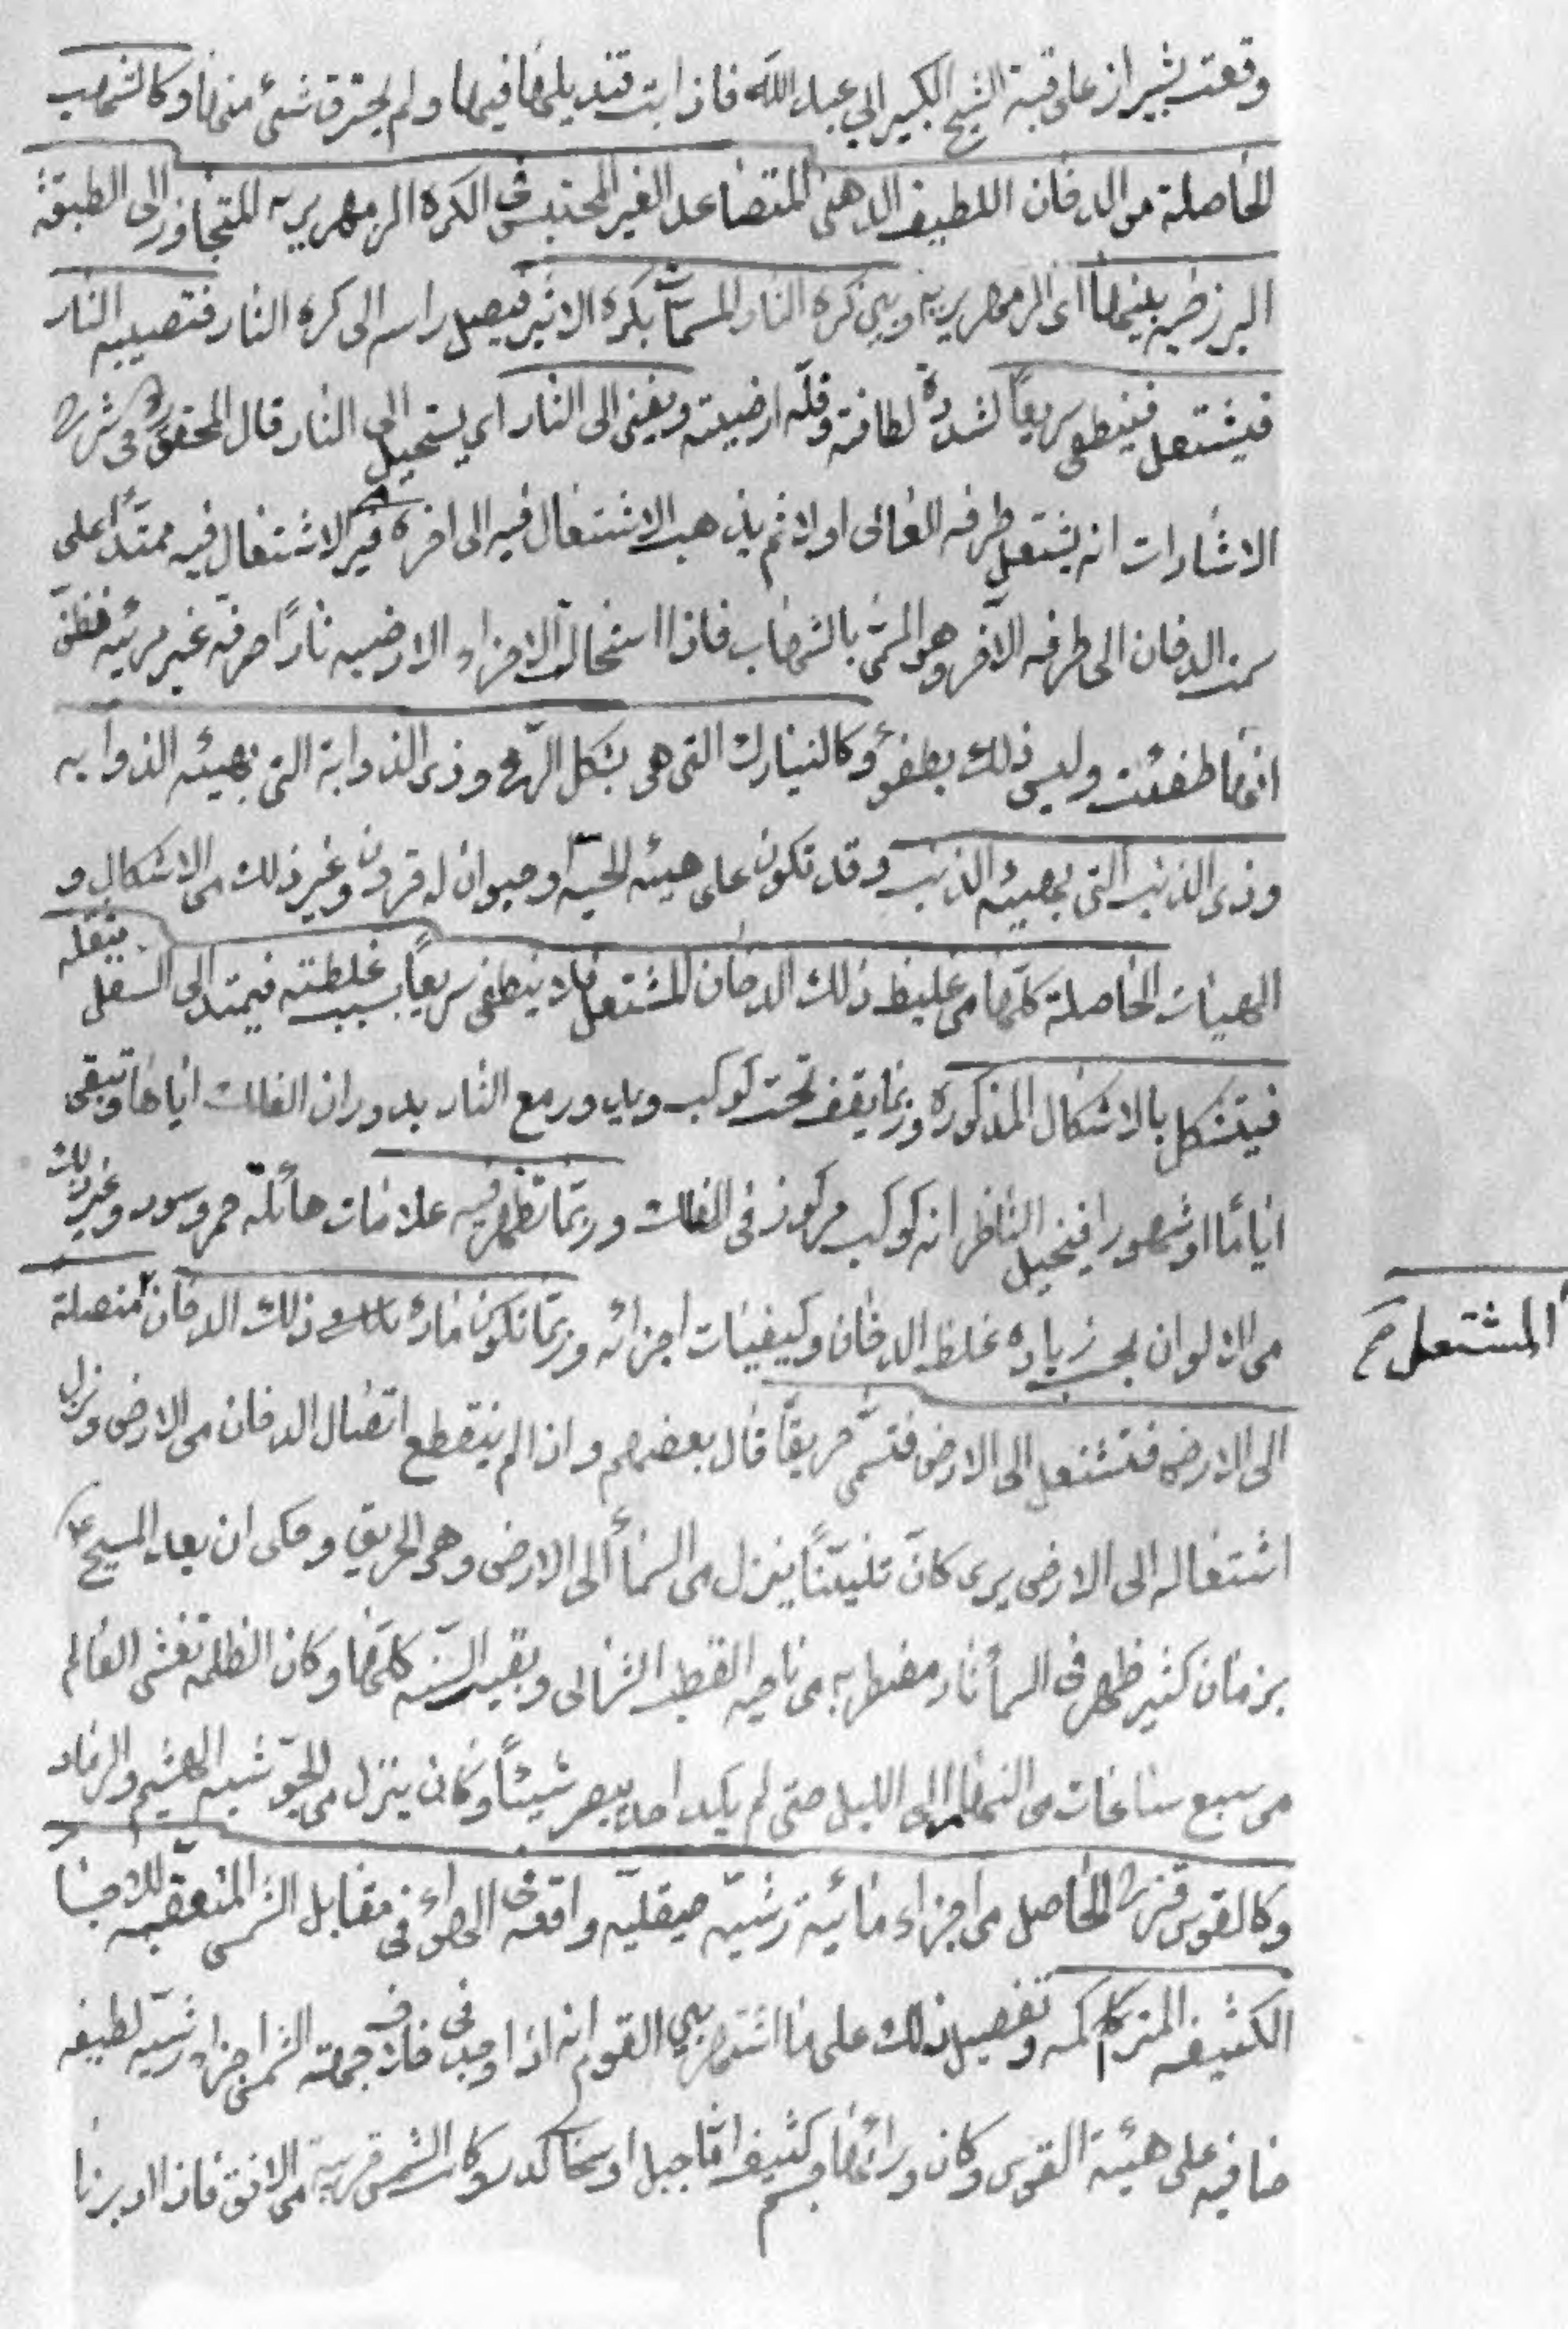 وقعت بشيراز على قبة الشيخ الكبير ابي عبد الله فاذابت قنديلها فيها ولم يحترق شئ منها وكالشهب
الحاصلة من الدخان اللطيف الدهنى المتصاعد الغير المحتبس فى الكرة الزمهريريه المتجاوز الى الطبقة
البرزخيه بينها اى الزمهريريه وبين كرة النار المسماة بكرة الاثير فيصل راسه الى كره النار فتصيبه النار
فيشتعل فينطفى سريعاً لشدة لطافته وقلّه ارضيته ويفنى الى النار اي يستحيل الى النار قال المحقق فى شرح
الاشارات انه يشتعل طرفه العالى اولا ثم يذهب الاشتعال فيه الى اخره فيرى الاشتعال فيه ممتداً على
سمت الدخان الى طرفه الآخر وهو المسمّى بالشهاب فاذا استحالت الاجزاء الارضيه ناراً صرفة غير مرئيه فظنّ
انها طفئت وليس ذلك بطفؤ وكالنيازك التى هى بشكل الرّمح وذى الذوابة التى بهيئه الذوابه
وذى الذنب التى بهيئه الذنب وقد تكون على هيئه الحيّه او حيوان له قرون وغير ذلك من الاشكال و
الهيئات الحاصلة كلّها من غليظ ذلك الدخان المشتعل فلا ينطفى سريعاً بسبب غلظته فيمتد الى السفل بثقله
فيتشكل بالاشكال المذكوره وربما يقف تحت كوكب ويدور مع النار بدوران الفلك اياها وتبقى
اياما او شهورا فيتخيل الناظر انه كوكب مركوز فى الفلك وربّما تظهر فيه علامات هائلة حمر وسود وغير ذلك
من الالوان بحسب زياده غلظ الدخان وكيفيات اجزائه وربّما تكون مادة ذلك الدخان متصلة
المشتعل صح
الى الارض فتشتعل الى الارض فتسمّى حريقاً قال بعضهم واذا لم ينقطع اتصال الدخان من الارض ونزل
اشتعاله الى الارض يرى كانّ تنيّناً ينزل من السمأ الى الارض وهو الحريق وحكى ان بعد المسيح ع
بزمان كثير ظهر فى السمأ نار مضطربه من ناحيه القطب الشمالى وبقيت السنه كلّها وكان الظلمة تغشى العالم
من سبع ساعات من النهار الى الليل حتى لم يكد احد يبصر شيئاً وكان ينزل من الجوّ شبه الهشيم والرماد
وكالقوس قزح الحاصل من اجزاء مائية رشيّه صيقليّه واقعة فى الهواء فى مقابل الشمس المتعقبه للاجسام
الكثيفه المتراكمه وتفصيل ذلك على ما اشتهر بين القوم انه اذا وجد فى خلاف جهة الشمس اجزاء رشيّه لطيفه
صافيه على هيئة القوس وكان ورائها جسم كثيف امّا جبل او سحاب كدر وكانت الشمس قريبة من الافق فاذا ادبرنا